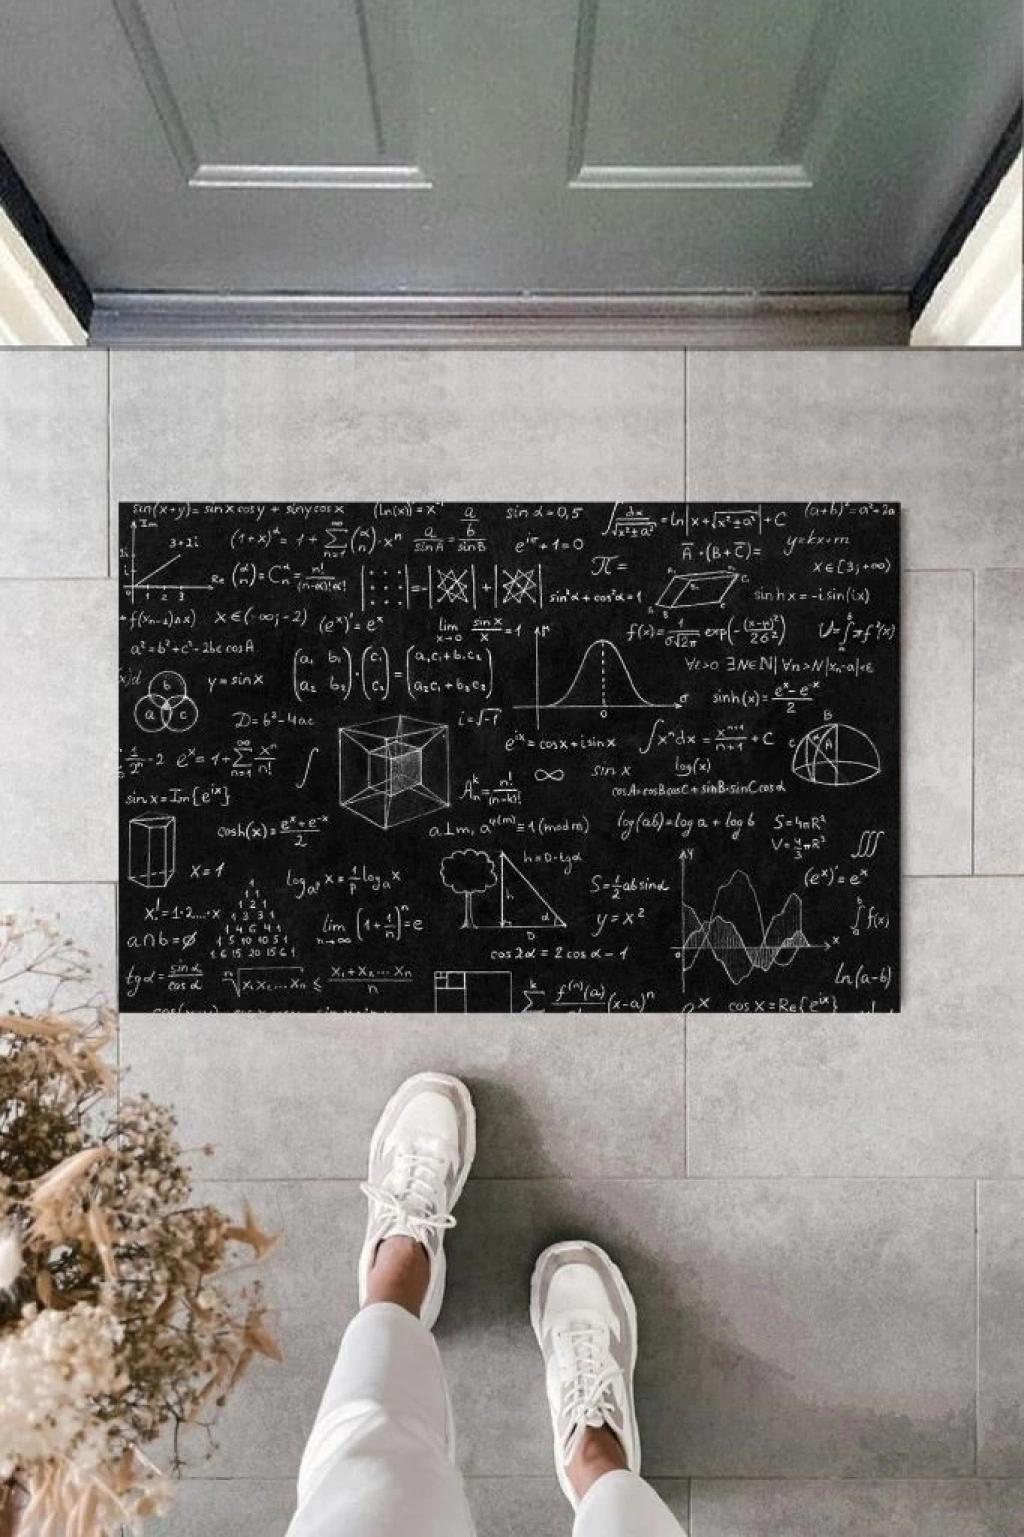 sin(x+y)= sinx cosy + siny cosx
(ln(x))'= x⁻¹
a/b
sin α=0,5
∫ dx/√(x²±a²) = ln|x+√(x²±a²)|+C
(a+b)²=a²+2a
Im
3+2i
2i
i
0 1 2 3
Re
(1+x)^α = 1+ ∑_{n=1}^{∞} (α n)·xⁿ
a/sinA = b/sinB
e^{iπ}+1=0
A̅·(B+C̅)=
y=kx+m
(α n)=C_n^α= n!/(n-α)!α!
π=
x∈[3;+∞)
sin²α+cos²α=1
sinhx=-i sin(ix)
+f(x_{n-1})Δx)
x∈(-∞;-2)
(e^x)'=e^x
lim x→0 sinx/x=1
f(x)= 1/(σ√2π) exp(-(x-μ)²/2σ²)
a²=b²+c²-2bc cosA
∀ε>0 ∃N∈ℕ| ∀n>N |x_n-a|<ε
(a₁ b₁ a₂ b₂)·(c₁ c₂)=(a₁c₁+b₁c₂ a₂c₁+b₂c₂)
x)d
y=sinx
b
a c
σ
0
sinh(x)= (e^x-e^{-x})/2
D=b²-4ac
i=√-1
e^{ix}=cosx+isinx
∫xⁿdx= x^{n+1}/(n+1) +C
B
C
A
1/2ⁿ -2
e^x=1+∑_{n=1}^{∞} xⁿ/n!
∫
∞
sin x
log(x)
A_n^k= n!/(n-k)!
cosA=cosBcosC+sinB·sinC cosα
sinx=Im{e^{ix}}
cosh(x)= (e^x+e^{-x})/2
a⊥m, a^{φ(m)}=1(modm)
log(ab)=log a + log b
S=4πR²
V=4/3 πR³
∭
x=1
log_{a^p} x= 1/p log_a x
h=D·tgα
h
α
D
S=1/2 ab sinα
y
(e^x)'=e^x
x!=1·2...·x
1
1 1
1 2 1
1 3 3 1
1 4 6 4 1
1 5 10 10 5 1
1 6 15 20 15 6 1
lim n→∞ (1+1/n)ⁿ=e
y=x²
∫_a^b f(x)
a∩b=∅
cos2α = 2cosα-1
0
x
tgα= sinα/cosα
ⁿ√(x₁x₂...x_n) ≤ (x₁+x₂...x_n)/n
ln(a-b)
∑^k f^{(n)}(a)/n! (x-a)ⁿ
e^x
cosx=Re{e^{ix}}